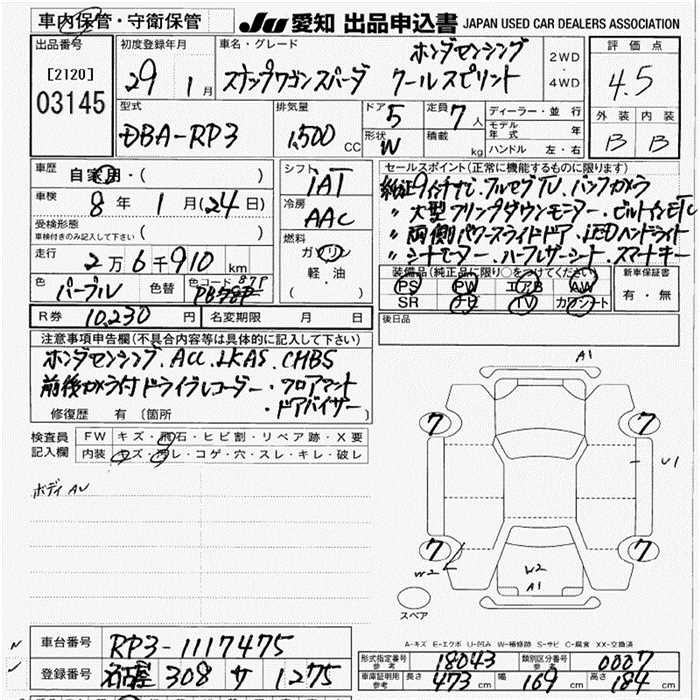 車内保管・守衛保管
JU 愛知 出品申込書 JAPAN USED CAR DEALERS ASSOCIATION
出品番号
[2120]
03145
初度登録年月
29 1月
車名・グレード
ホンダセンシング
ステップワゴンスパーダ クールスピリット
2WD
・
4WD
評価点
4.5
型式
DBA-RP3
排気量
1,500 CC
ドア 5
形状 W
定員 7人
積載 kg
ディーラー・並行
モデル年式 年
ハンドル 左・右
外装 内装
B B
車歴
自家用・( )
車検
8年 1月(24日)
受検形態
車検付きのみ記入して下さい ( )
走行
2万6千910km
シフト
IAT
冷房
AAC
燃料
ガソリン
軽・油
( )
セールスポイント(正常に機能するものに限ります)
純正9インチナビ・フルセグTV・バックカメラ
〃 大型フリップダウンモニター・ビルトインETC
〃 両側パワースライドドア・LEDヘッドライト
〃 シートモーター・ハーフレザーシート・スマートキー
装備品(純正品に限り○をつけてください)
PS PW エアB AW
SR ナビ TV カワシート
新車保証書
有・無
色 パープル 色替 色コード 87P
PB
R券 10,230円 名変期限 月 日
後日品
注意事項申告欄(不具合内容等は具体的に記入して下さい)
ホンダセンシング.ACC.LKAS.CMBS
前後カメラ付ドライブレコーダー・フロアマット
・ドアバイザー
修復歴 有 (箇所 )
検査員記入欄
FW キズ・飛石・ヒビ割・リペア跡・X要
内装 キズ・汚レ・コゲ・穴・スレ・キレ・破レ
ボディAU
A1
7 7
U1
7 7
W2 W2
A1
スペア
A-キズ E-エクボ U-凹み W-補修跡 S-サビ C-腐食 XX-交換済
車台番号 RP3-1117475
登録番号 名古屋 308 サ 1275
型式指定番号参考 18043 類別区分番号参考 0007
車庫証明用参考 長さ 473cm 幅 169cm 高さ 184cm